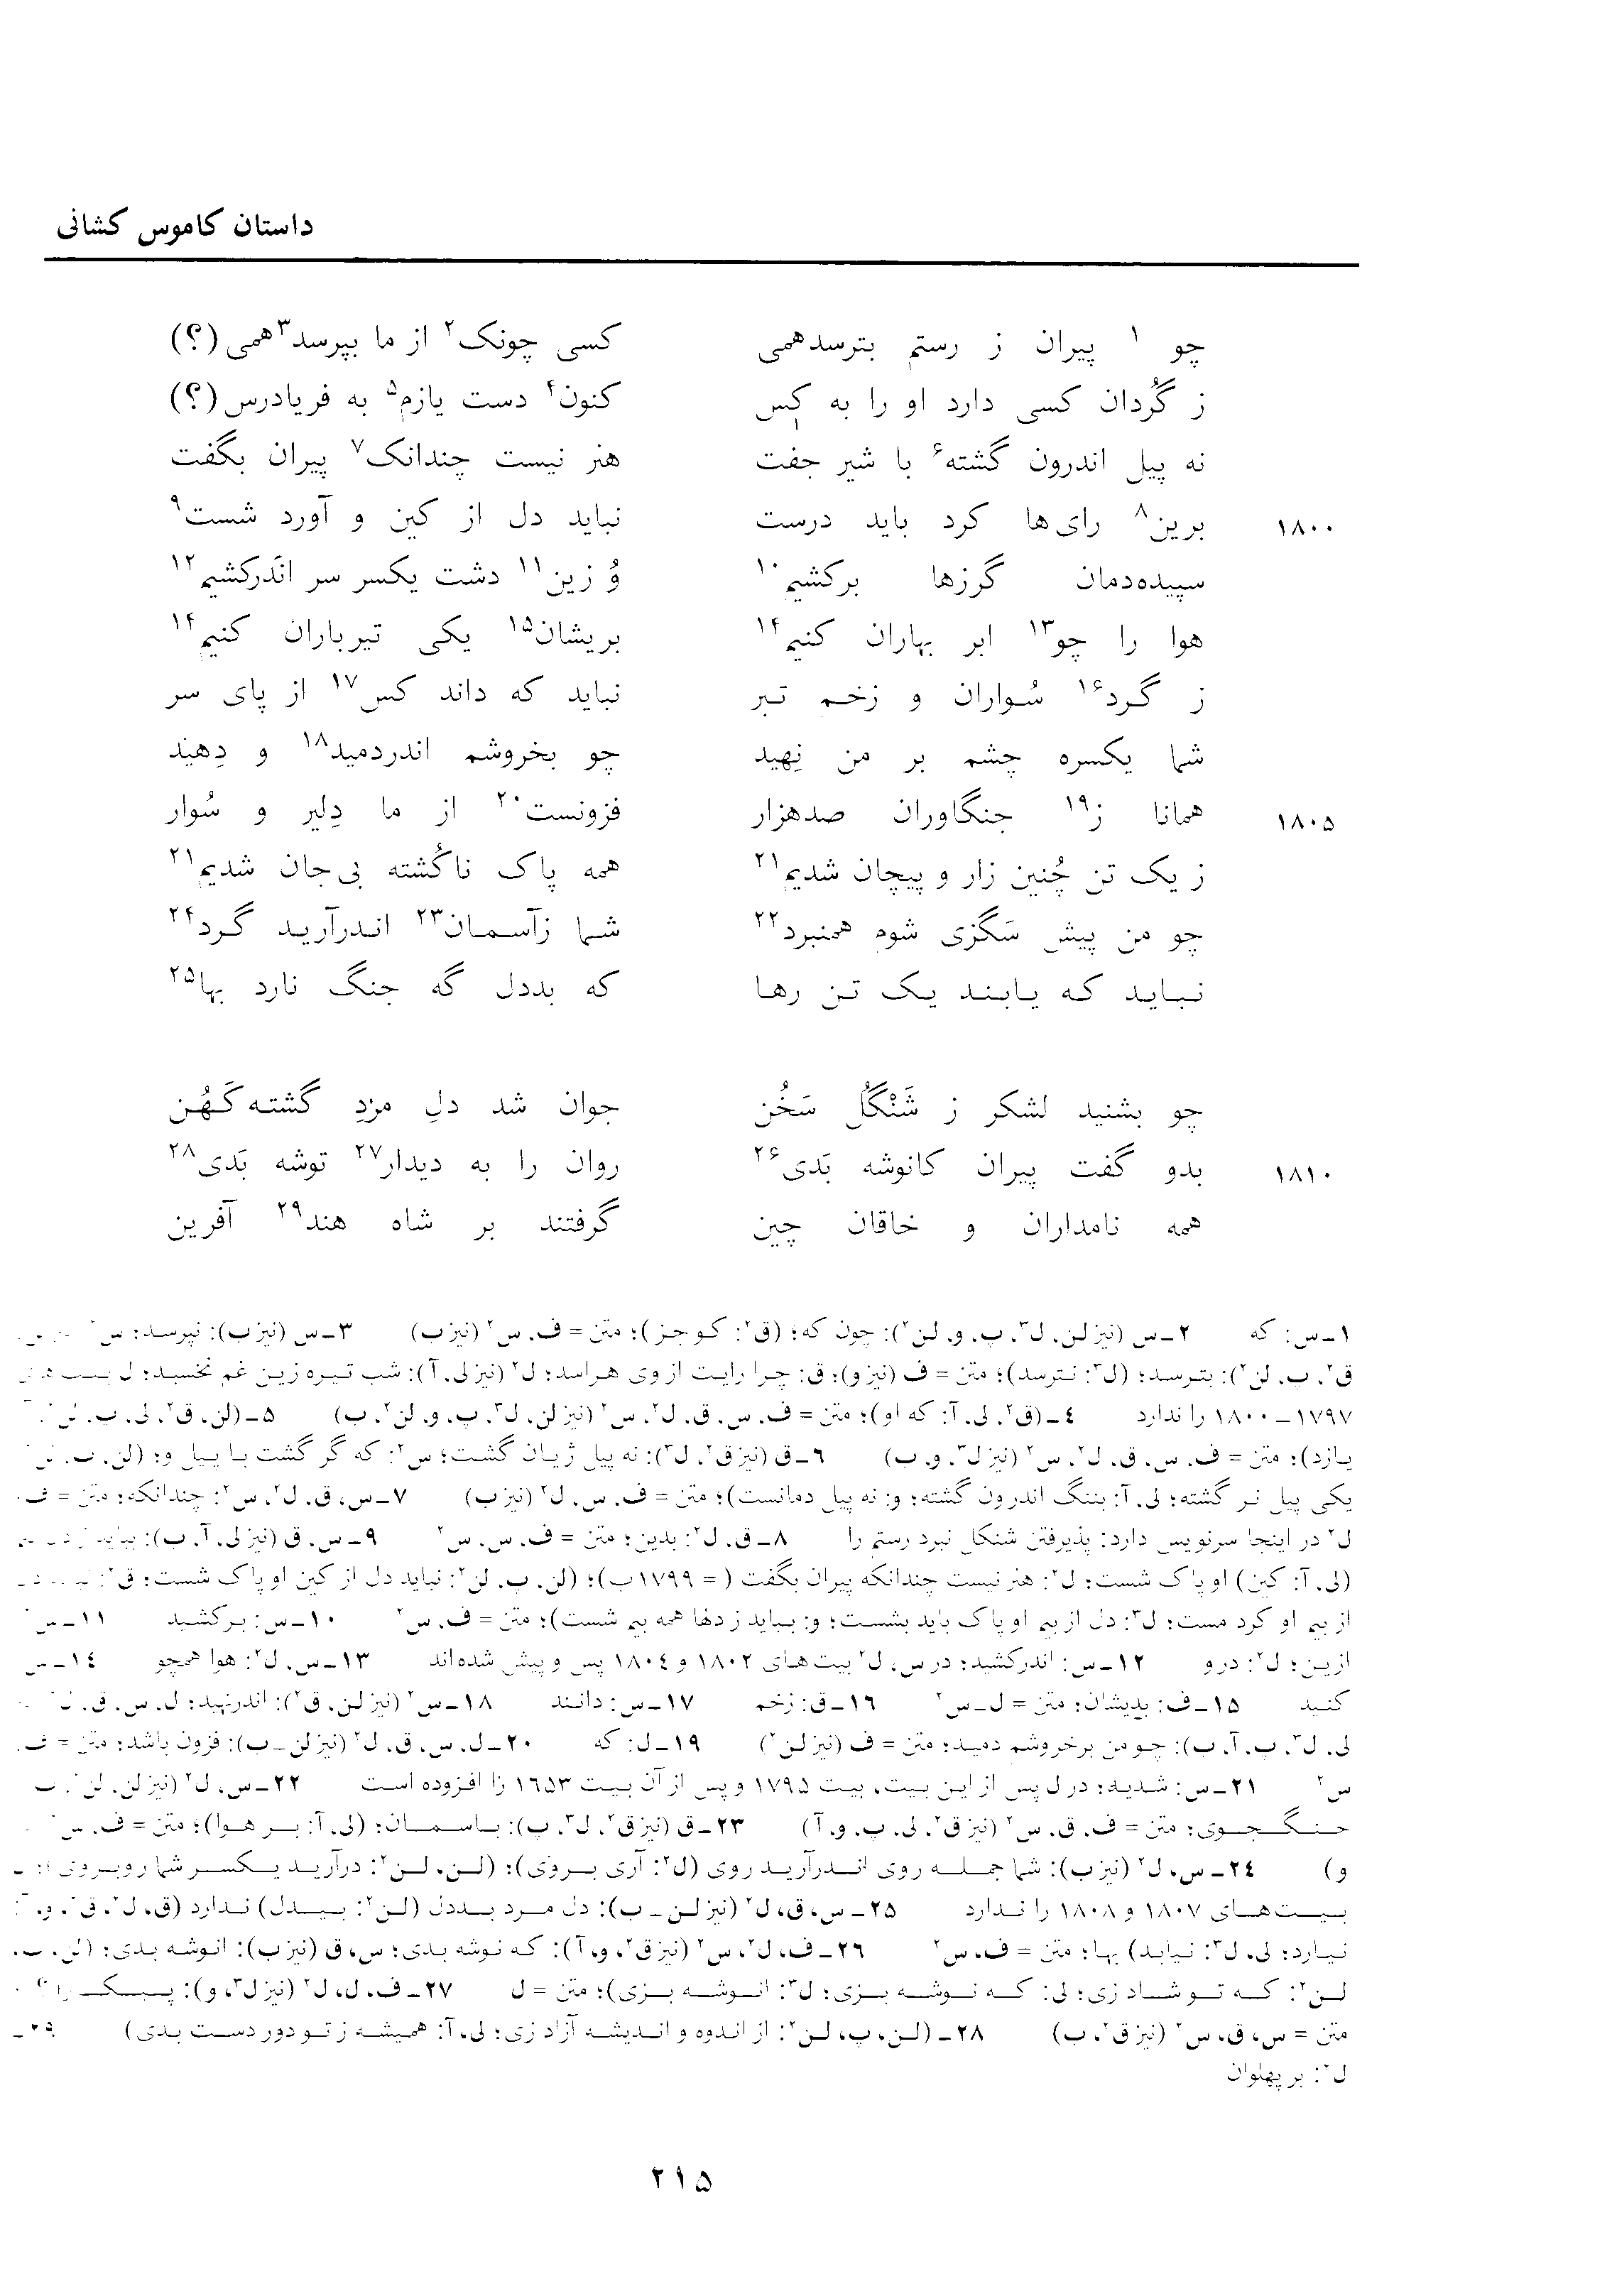 داستان کاموس کشانی
چو ۱ پیران ز رستم بترسدهمی کسی چونک۲ از ما بپرسد۳همی (؟)
ز گُردان کسی دارد او را به کِس کنون۴ دست یازم۵ به فریادرس (؟)
نه پیل اندرون گشته۶ با شیر جفت هنر نیست چندانک۷ پیران بگفت
۱۸۰۰ برین۸ رای‌ها کرد باید درست نباید دل از کین و آورد شست۹
سپیده‌دمان گرزها برکشیم۱۰ وُ زین۱۱ دشت یکسر سر اندَرکشیم۱۲
هوا را چو۱۳ ابر بهاران کنیم۱۴ بریشان۱۵ یکی تیرباران کنیم۱۴
ز گرد۱۶ سُواران و زخم تبر نباید که داند کس۱۷ از پای سر
شما یکسره چشم بر من نِهید چو بخروشم اندردمید۱۸ و دِهید
۱۸۰۵ همانا ز۱۹ جنگاوران صدهزار فزونست۲۰ از ما دِلیر و سُوار
ز یک تن چُنین زار و پیچان شدیم۲۱ همه پاک ناکُشته بی‌جان شدیم۲۱
چو من پیش سَگزی شوم همنبرد۲۲ شما زآسمان۲۳ اندرآرید گرد۲۴
نباید که یابند یک تن رها که بددل گه جنگ نارد بها۲۵
چو بشنید لشکر ز شَنْگُل سَخُن جوان شد دلِ مردِ گشته کَهُن
۱۸۱۰ بدو گفت پیران کانوشه بَدی۲۶ روان را به دیدار۲۷ توشه بَدی۲۸
همه نامداران و خاقان چین گرفتند بر شاه هند۲۹ آفرین
۱ـ س: که ۲ـ س (نیز لن، ل۳، پ، و، لن۲): چون که؛ (ق۲: کو جز)؛ متن = ف، س۲ (نیز ب) ۳ـ س (نیز ب): نپرسد؛ س۲
ق۲، ب، لن۲): بترسد؛ (ل۳: نترسد)؛ متن = ف (نیز و)؛ ق: چرا رایت از وی هراسد؛ ل۲ (نیز لی، آ): شب تیره زین غم نخسبد؛ ل بیت‌های
۱۷۹۷ ـ ۱۸۰۰ را ندارد ۴ـ (ق۲، لی، آ: که او)؛ متن = ف، س، ق، ل۲، س۲ (نیز لن، ل۳، پ، و، لن۲، ب) ۵ـ (لن، ق۲، لی، پ، لن۲
یازد)؛ متن = ف، س، ق، ل۲، س۲ (نیز ل۳، و، ب) ۶ـ ق (نیز ق۲، ل۳): نه پیل ژیان گشت؛ س۲: که گر گشت با پیل و؛ (لن، پ، لن۲
یکی پیل نر گشته؛ لی، آ: بننگ اندرون گشته؛ و: نه پیل دمانست)؛ متن = ف، س، ل۲ (نیز ب) ۷ـ س، ق، ل۲، س۲: چندانکه؛ متن = ف؛
ل۲ در اینجا سرنویس دارد: پذیرفتن شنکل نبرد رستم را ۸ـ ق، ل۲: بدین؛ متن = ف، س، س۲ ۹ـ س، ق (نیز لی، آ، ب):
(لی، آ: کین) او پاک شست؛ ل۲: هنر نیست چندانکه پیران بگفت ( = ۱۷۹۹ ب)؛ (لن، پ، لن۲: نباید دل از کین او پاک شست؛ ق۲:
از بیم او کرد مست؛ ل۳: دل از بیم او پاک باید بشست؛ و: بباید ز دلها همه بیم شست)؛ متن = ف، س۲ ۱۰ـ س: برکشید ۱۱ـ س
ازین؛ ل۲: درو ۱۲ـ س: اندرکشید؛ در س، ل۲ بیت‌های ۱۸۰۲ و ۱۸۰۴ پس و پیش شده‌اند ۱۳ـ س، ل۲: هوا همچو ۱۴ـ س
کنید ۱۵ـ ف: بدیشان؛ متن = ل ـ س۲ ۱۶ـ ق: زخم ۱۷ـ س: دانند ۱۸ـ س۲ (نیز لن، ق۲): اندرنهید؛ ل، س، ق، ل۲
لی، ل۳، پ، آ، ب): چو من برخروشم دمید؛ متن = ف (نیز لن۲) ۱۹ـ ل: که ۲۰ـ ل، س، ق، ل۲ (نیز لن ـ ب): فزون باشد؛ متن = ف،
س۲ ۲۱ـ س: شدید؛ در ل پس از این بیت، بیت ۱۷۹۵ و پس از آن بیت ۱۶۵۳ را افزوده است ۲۲ـ س، ل۲ (نیز لن، لن۲، ب
جنگجوی؛ متن = ف، ق، س۲ (نیز ق۲، لی، پ، و، آ) ۲۳ـ ق (نیز ق۲، ل۳، پ): باسمان؛ (لی، آ: بر هوا)؛ متن = ف، س
و) ۲۴ـ س، ل۲ (نیز ب): شما جمله روی اندرآرید روی (ل۲: آری بروی)؛ (لن، لن۲: درآرید یکسر شما روبروی)؛
بیت‌های ۱۸۰۷ و ۱۸۰۸ را ندارد ۲۵ـ س، ق، ل۲ (نیز لن ـ ب): دل مرد بددل (لن۲: بیدل) ندارد (ق، ل۲، ق۲، و،
نیارد؛ لی، ل۳: نیابد) بها؛ متن = ف، س۲ ۲۶ـ ف، ل۲، س۲ (نیز ق۲، و، آ): که نوشه بدی؛ س، ق (نیز ب): انوشه بدی؛ (لن، پ،
لن۲: که تو شاد زی؛ لی: که نوشه بزی؛ ل۳: انوشه بزی)؛ متن = ل ۲۷ـ ف، ل، ل۲ (نیز ل۳، و):
متن = س، ق، س۲ (نیز ق۲، ب) ۲۸ـ (لن، پ، لن۲: از اندوه و اندیشه آزاد زی؛ لی، آ: همیشه ز تو دور دست بدی) ۲۹ـ
ل۲: بر پهلوان
۲۱۵